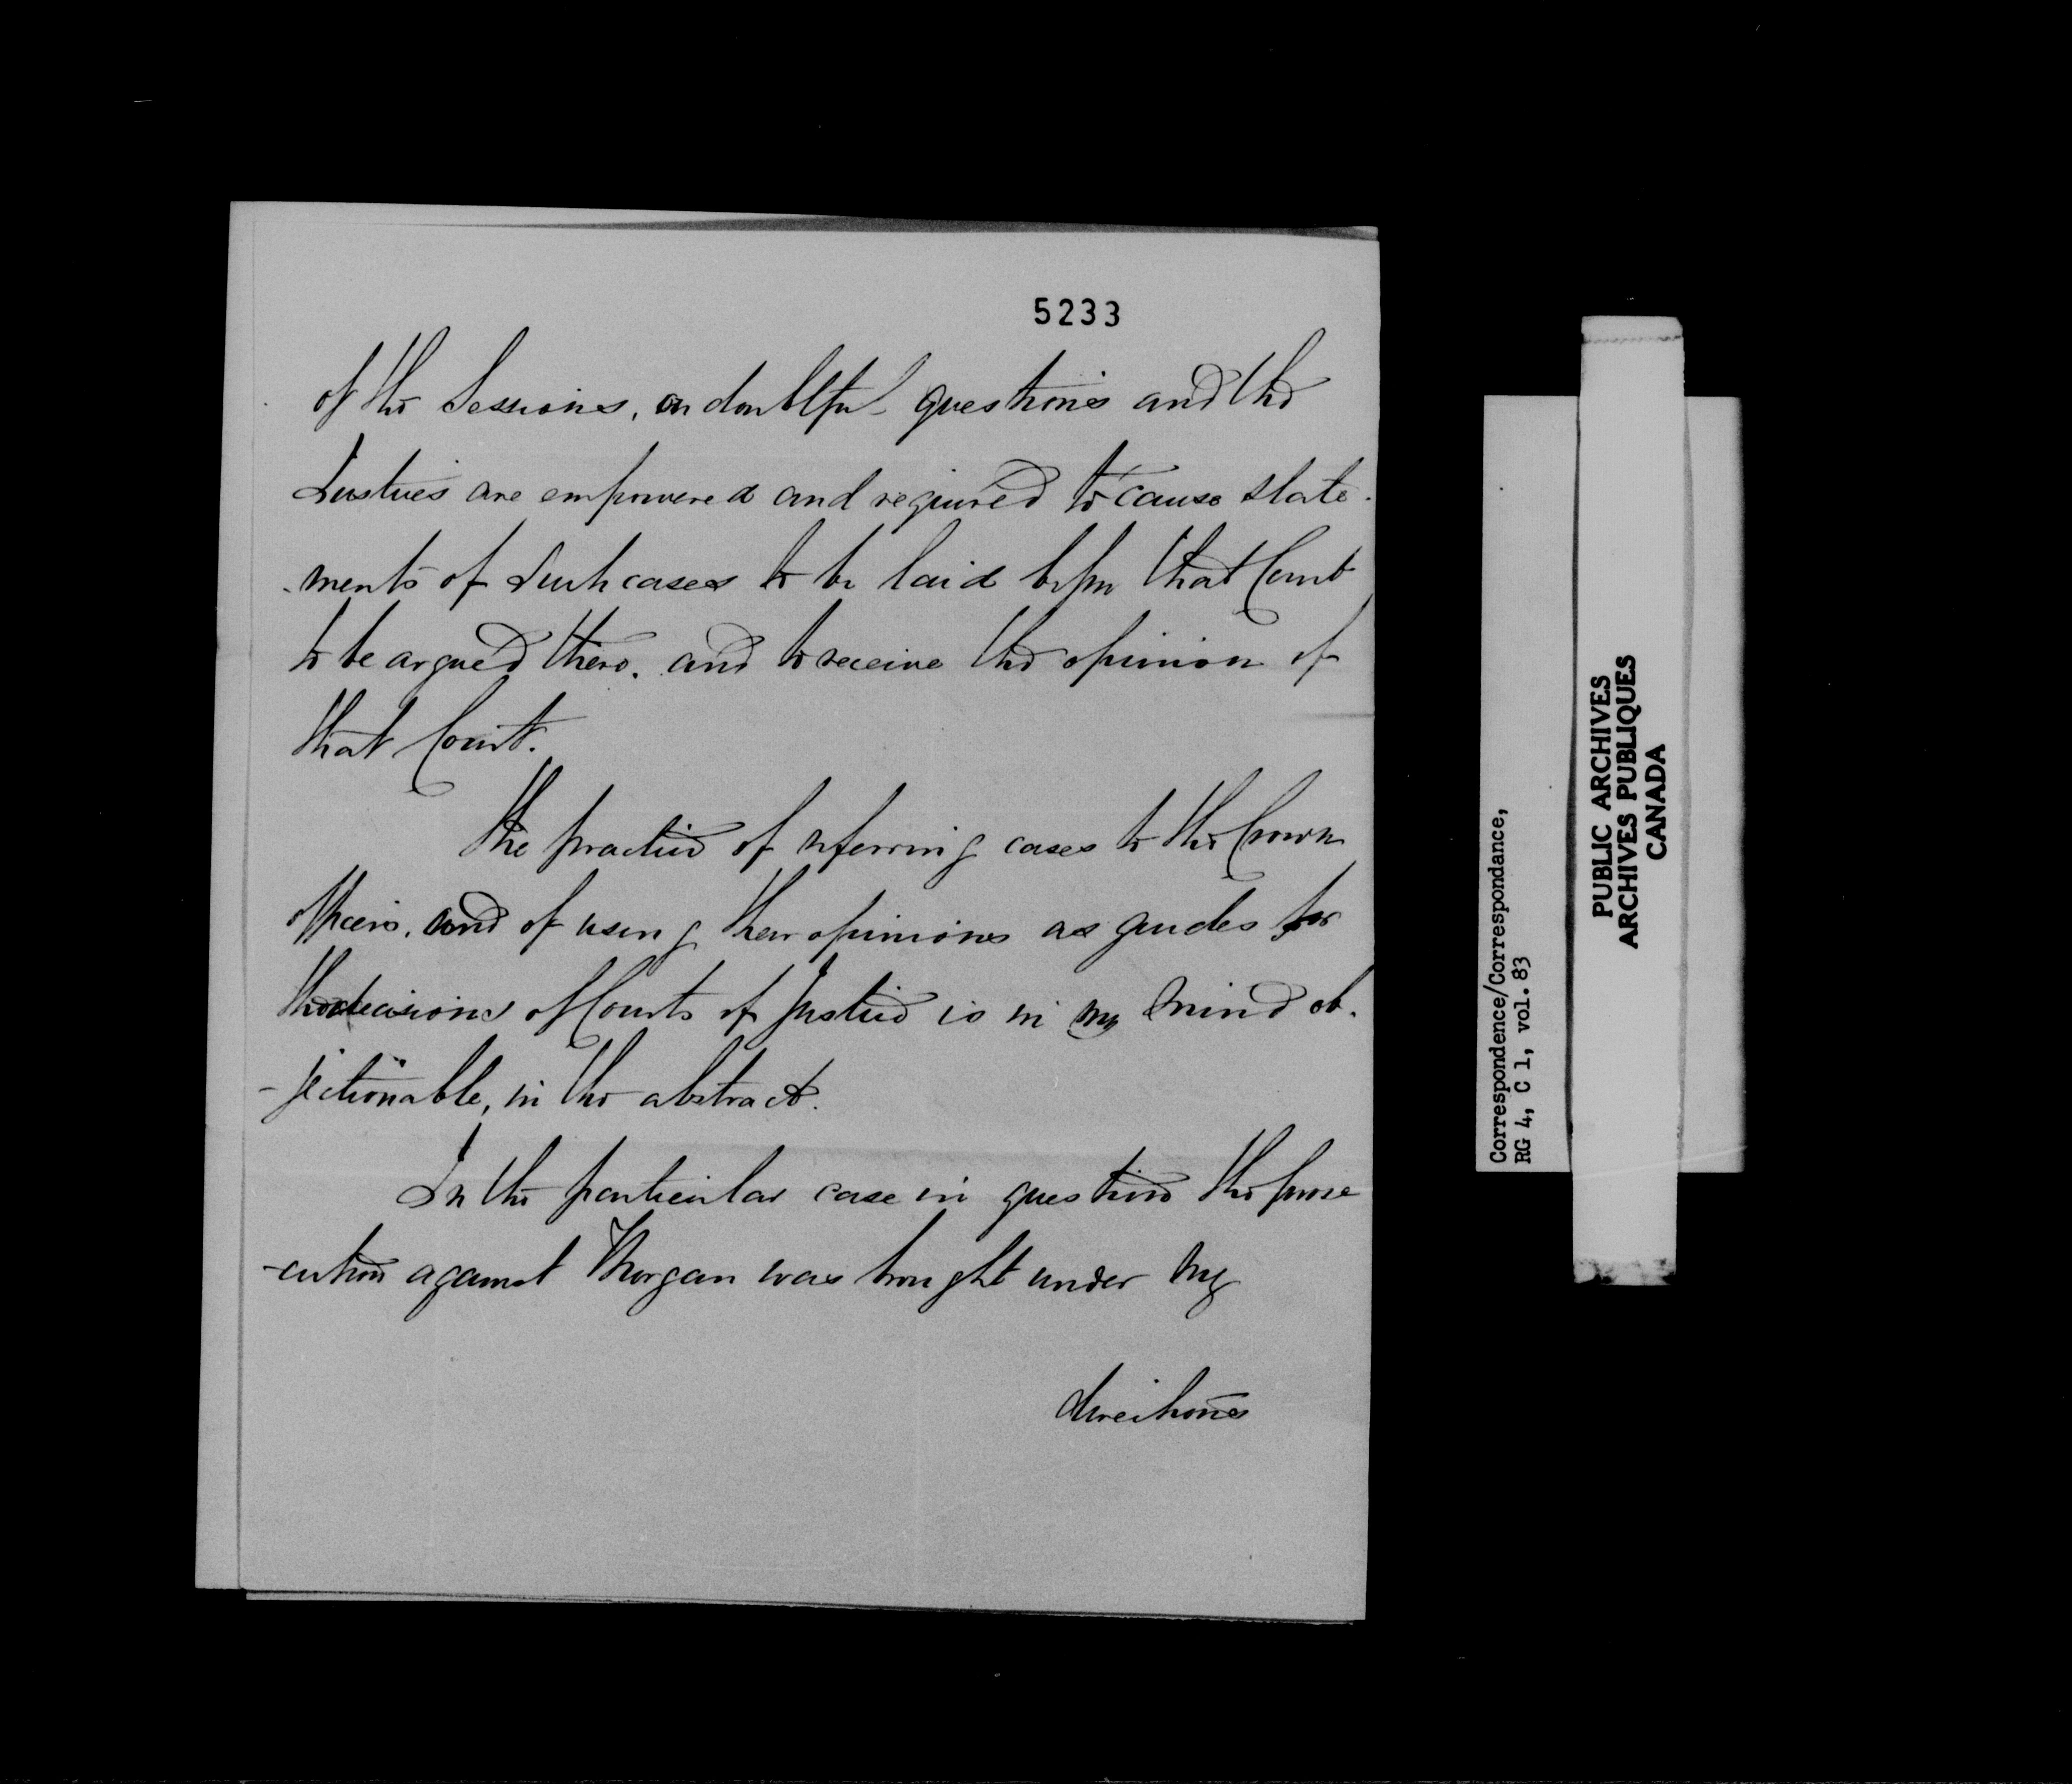 5233
of the Sessions, on doubtful questions and the
Justices are empowered and required to cause state-
-ments of such cases to be laid before that Court
to be argued there, and to receive the opinion of
that Court.
The practice of referring cases to the Crown
officers, and of using their opinions as guides for
the decisions of Courts of Justice is in my mind ob-
-jectionable, in the abstract.
In the particular case in question the prose
-cution against Morgan was brought under my
directions
Correspondence/Correspondance,
RG 4, C 1, vol. 83
PUBLIC ARCHIVES
ARCHIVES PUBLIQUES
CANADA